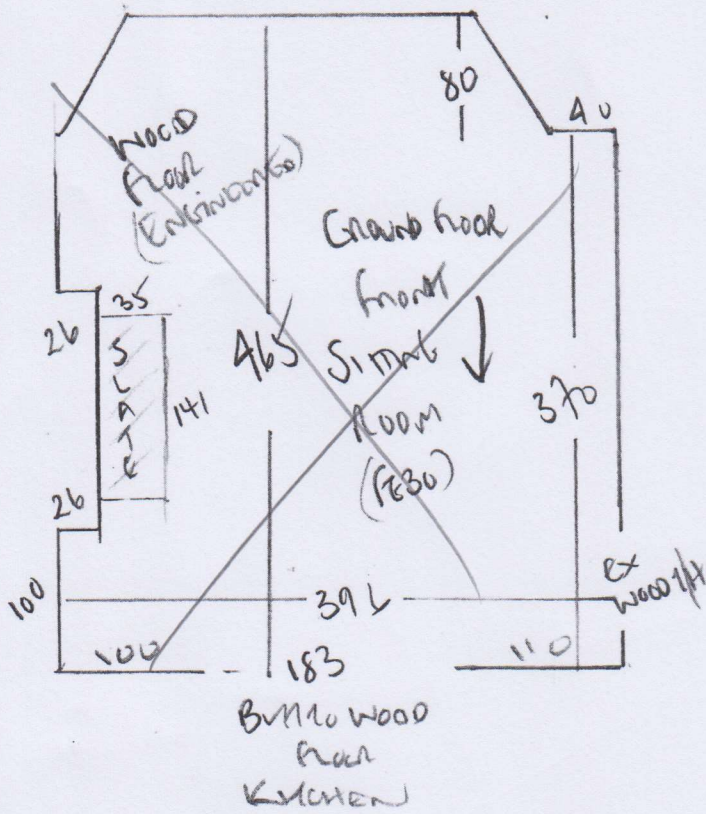 80
40
WOOD
FLOOR
(ENGINEERED)
GROUND FLOOR
FRONT
SITTING
ROOM
35
26
SLATE
141
465
370
26
100
EX
WOOD
100
183
110
WOOD
FLOOR
KITCHEN